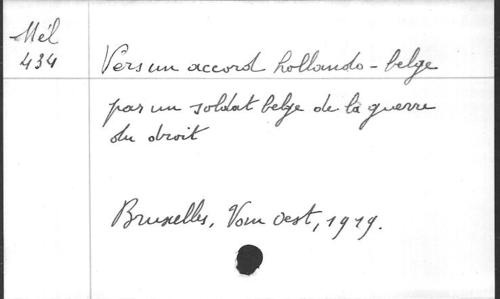 Mél
434
Vers un accord hollando-belge
par un soldat belge de la guerre
du droit
Bruxelles, Vom Oest, 1919.